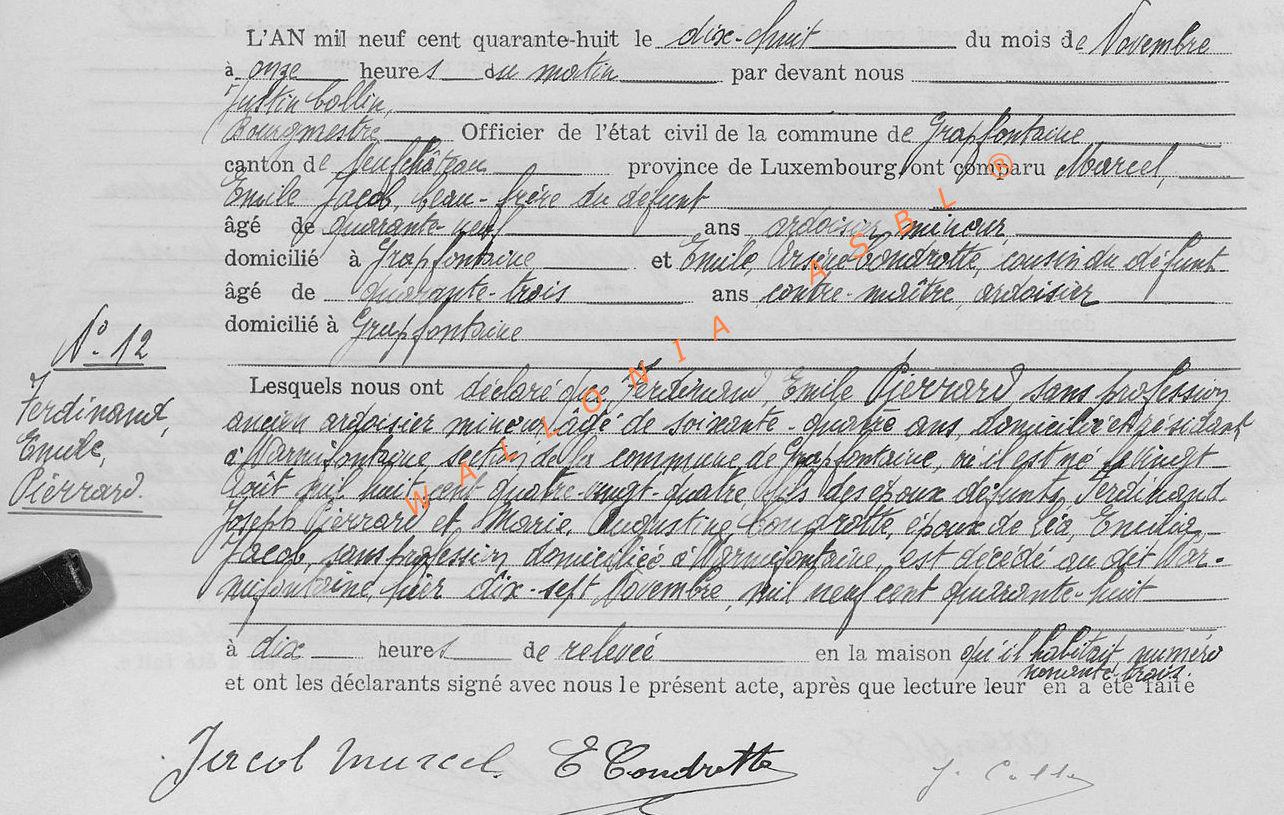 L'AN mil neuf cent quarante-huit le dix-huit du mois de Novembre
à onze heures du matin par devant nous
Justin Collin,
Bourgmestre Officier de l'état civil de la commune de Grapfontaine
canton de Neufchâteau province de Luxembourg, ont comparu Marcel,
Emile Jacob, beau-frère du défunt
âgé de quarante-neuf ans ardoisier mineur
domicilié à Grapfontaine et Emile, Arsène Condrotte, cousin du défunt
âgé de quarante-trois ans contre-maître ardoisier
domicilié à Grapfontaine
Lesquels nous ont déclaré que Ferdinand, Emile Pierrard sans profession
ancien ardoisier mineur, âgé de soixante-quatre ans, domicilié et résidant
à Warmifontaine, section de la commune de Grapfontaine, où il est né le vingt
Août mil huit cent quatre-vingt-quatre, fils des époux défunts, Ferdinand
Joseph Pierrard et Marie, Augustine Condrotte, époux de Léa, Emilia
Jacob, sans profession domiciliée à Warmifontaine, est décédé au dit War-
mifontaine, hier dix-sept Novembre, mil neuf cent quarante-huit
à dix heures de relevée en la maison qu'il habitait, numéro
nonante-trois.
et ont les déclarants signé avec nous le présent acte, après que lecture leur en a été faite
Jacob Marcel E Condrotte J. Collin
N° 12
Ferdinand,
Emile,
Pierrard.
WALLONIA ASBL ®